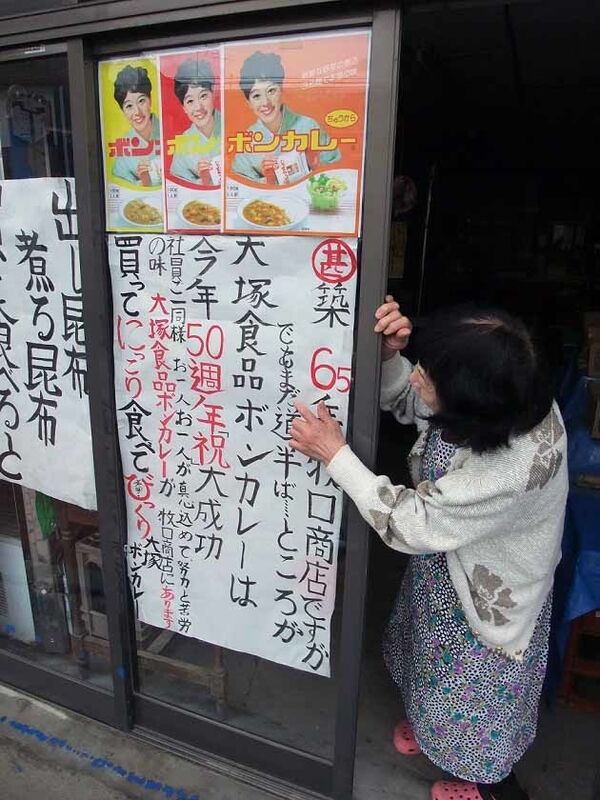 ボン
ボンカ
ボンカレー
ちゅうから
築 65年牧口商店ですが
でもまだ道半ば…ところが
大塚食品ボンカレーは
今年50週年「祝」大成功
社員ご一同様 お一人お一人が真心込めて努力と苦労
の味 大塚食品ボンカレーが 牧口商店にあります
買ってにっこり食べてびっくり大塚ボンカレー
出し昆布
煮る昆布
食べると